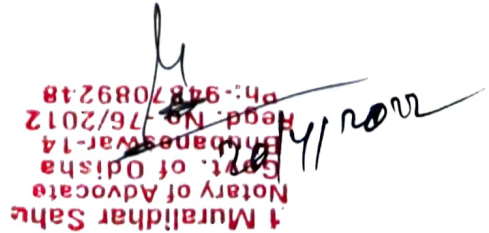 1 Muralidhar Sahu
Notary of Advocate
Govt. of Odisha
Bhubaneswar-14
Regd. No.-76/2012
Ph:-
20/4/2022